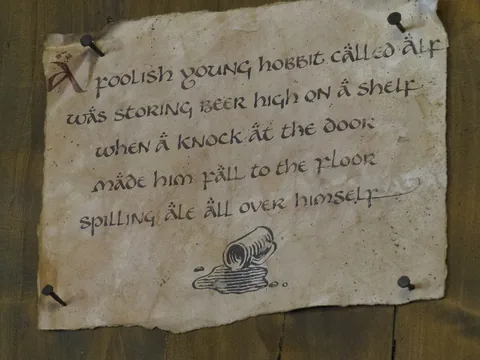 A foolish young hobbit called Alf
was storing beer high on a shelf
when a knock at the door
made him fall to the floor
spilling ale all over himself